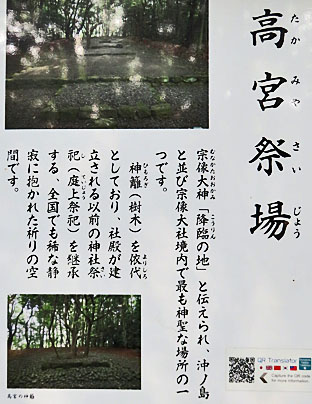 高宮祭場
たかみやさいじょう
宗像大神「降臨の地」と伝えられ、沖ノ島
むなかたおおかみ こうりん
と並び宗像大社境内で最も神聖な場所の一
つです。
神籬（樹木）を依代
ひもろぎ よりしろ
としており、社殿が建
立される以前の神社祭
祀（庭上祭祀）を継承
する、全国でも稀な静
寂に抱かれた祈りの空
間です。
高宮の神籬
QR Translator
Capture the QR code
for more information.